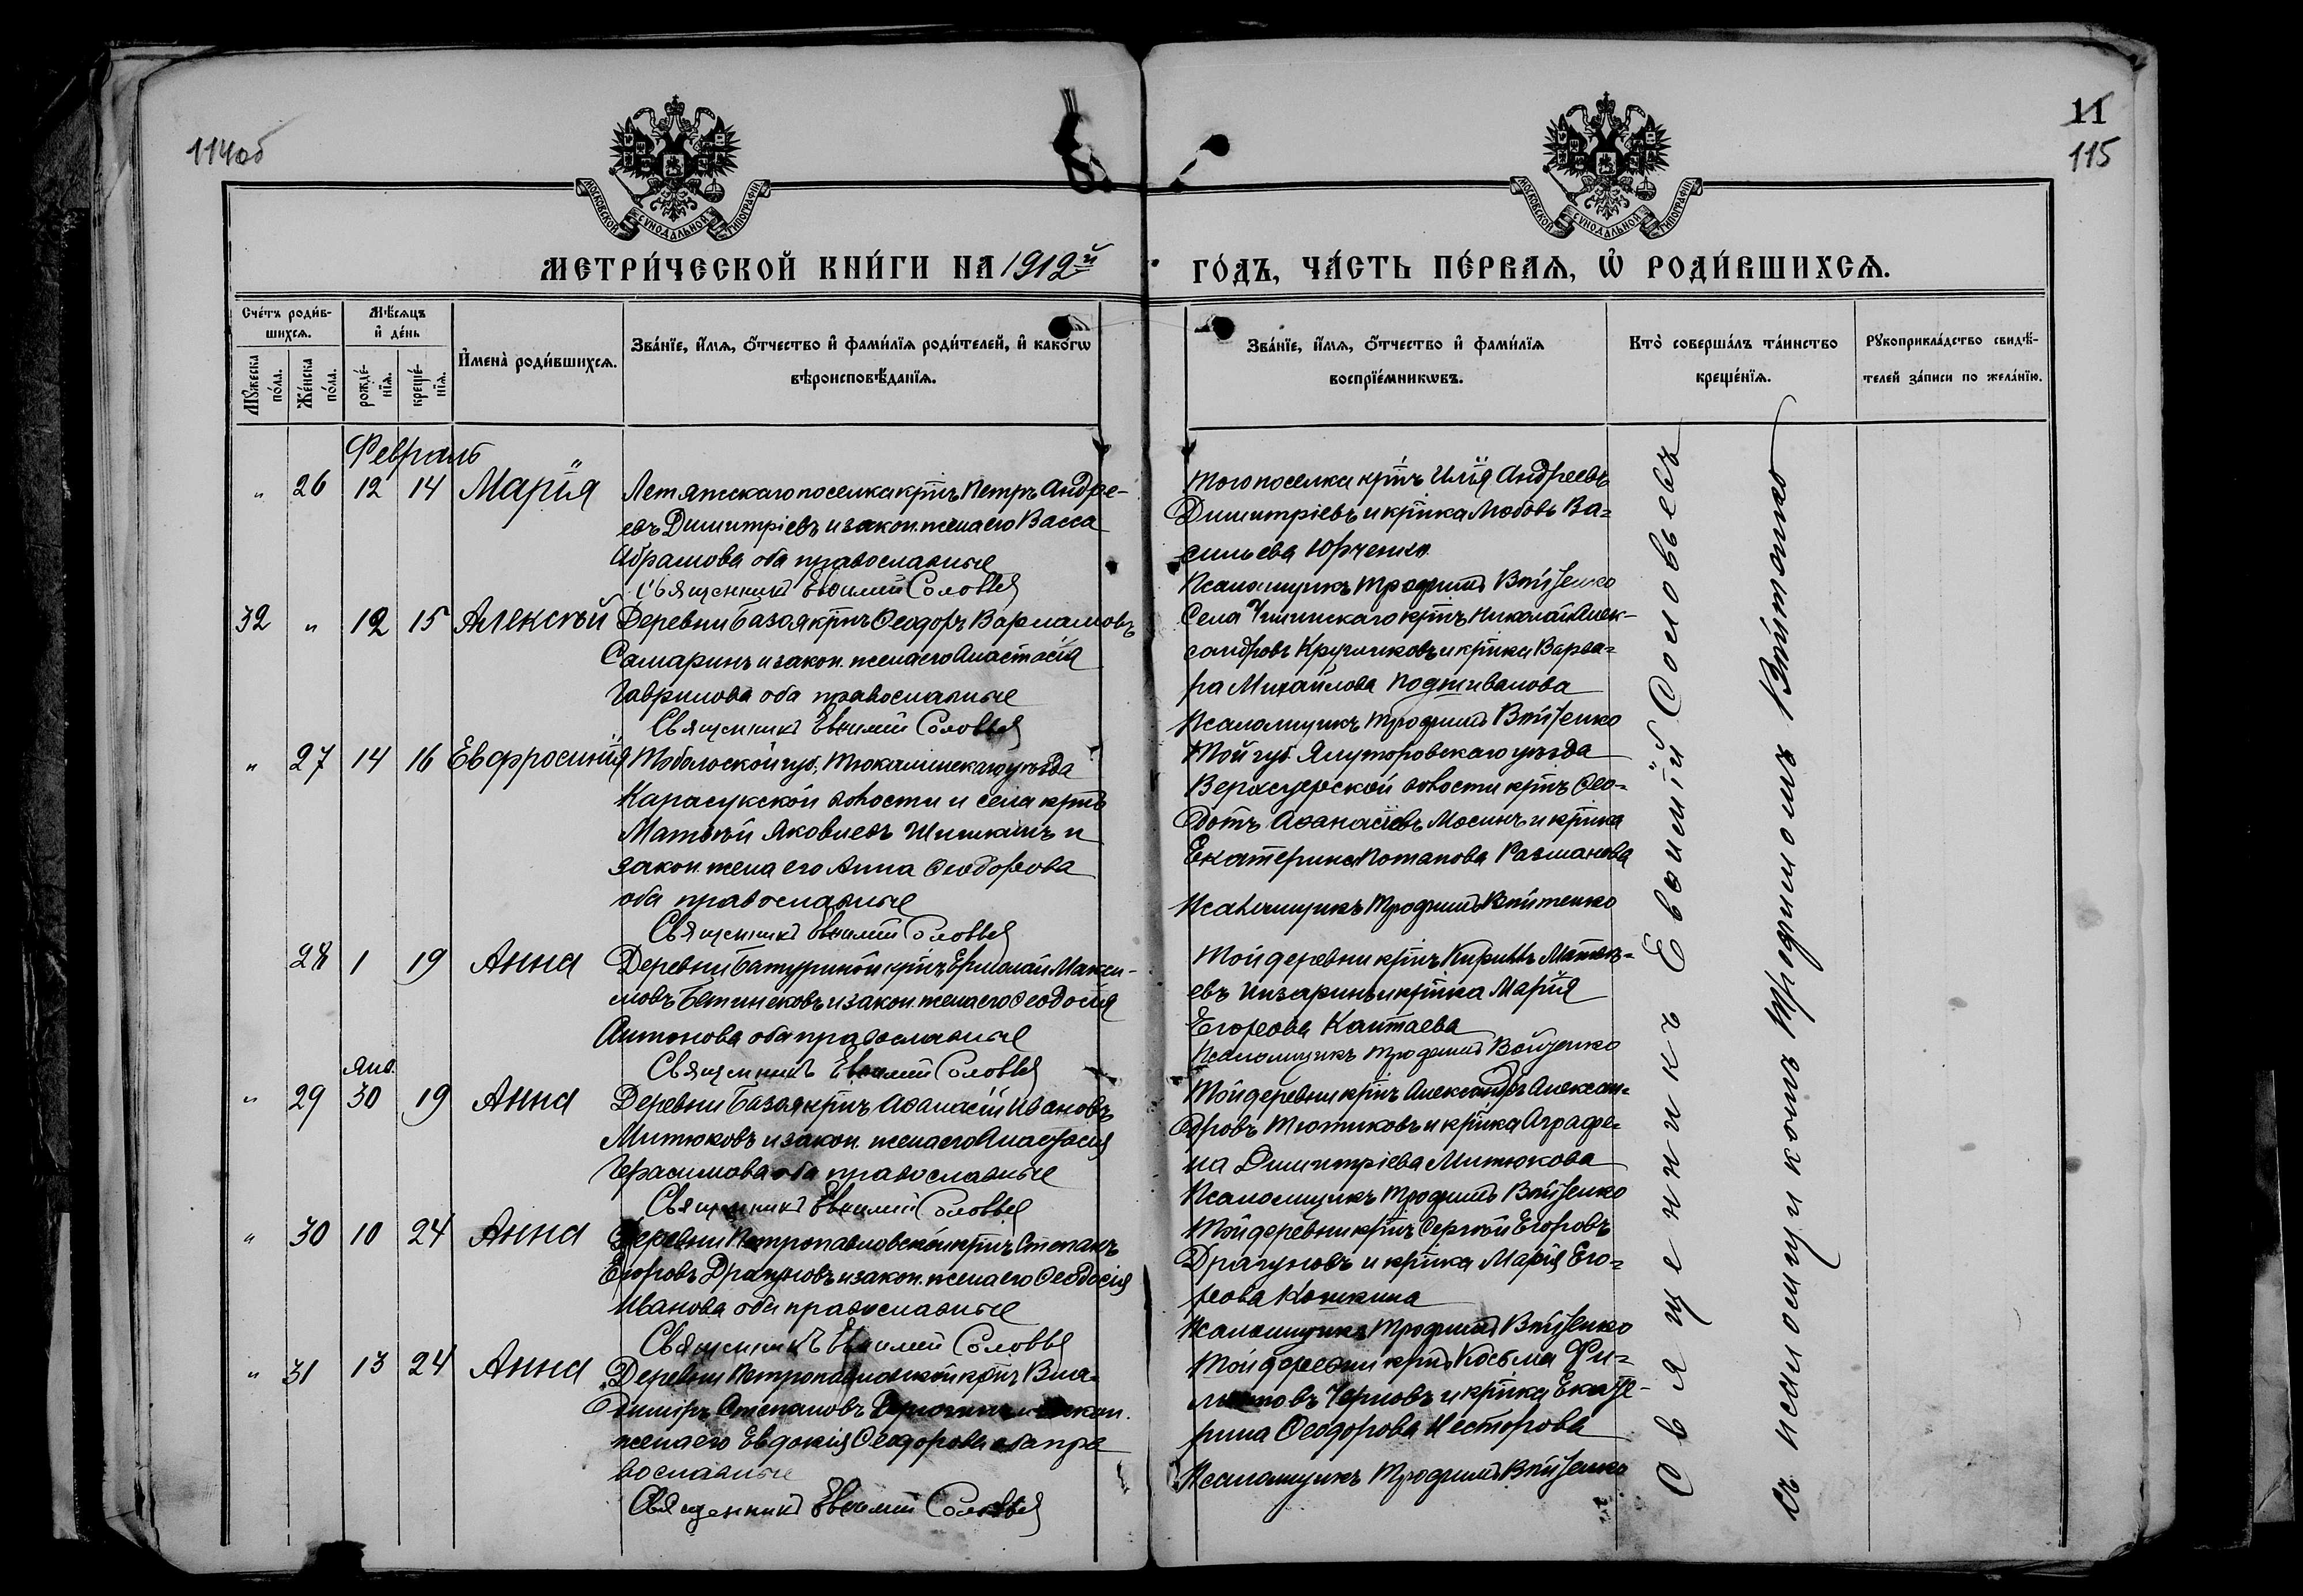 114об
11
115
МОСКОВСКОЙ СѴНОДАЛЬНОЙ ТИПОГРАФІИ
МОСКОВСКОЙ СѴНОДАЛЬНОЙ ТИПОГРАФІИ
МЕТРИ́ЧЕСКОЙ КНИ́ГИ НА 1912й
ГО́ДЪ, ЧА́СТЬ ПЕ́РВАѦ, Ѽ РОДИ́ВШИХСѦ.
Сче́тъ роди́в-
шихсѧ.
Мꙋ́жеска по́ла.
Же́нска по́ла.
Мѣ́сѧцъ
и҆ де́нь
рожде́-
нїѧ.
креще́-
нїѧ.
И҆мена̀ роди́вшихсѧ.
Зва́нїе, и҆́мѧ, ѻ҆́тчество и҆ фами́лїѧ роди́телей, и҆ како́гѡ
вѣроисповѣ́данїѧ.
Зва́нїе, и҆́мѧ, ѻ҆́тчество и҆ фами́лїѧ
воспрїе́мникѡвъ.
Кто̀ соверша́лъ та́инство
креще́нїѧ.
Рꙋкоприкла́дство свидѣ́-
телей за́писи по жела́нїю.
Февраль
" 26 12 14 Марія
Летяжскаго поселка крнъ Петръ Андре-
евъ Димитріевъ и закон. жена его Васса
Абрамова оба православные
Священникъ Евѳимій Соловьев
Того поселка крнъ Илія Андреевъ
Димитріевъ и крнка Любовь Ва=
сильева Юрченко
Псаломщикъ Трофимъ Войтенко
32 " 12 15 Алексѣй
Деревни Базоя крнъ Ѳеодоръ Варламовъ
Самаринъ и закон. жена его Анастасія
Гаврилова оба православные
Священникъ Евѳимій Соловьев
Села крнъ Николай Алек-
сандровъ Кругликовъ и крнка Варва=
ра Михайлова Подживалова
Псаломщикъ Трофимъ Войтенко
" 27 14 16 Евфросинія
Тобольской губ. Тюкалинскаго уѣзда
Карасукской волости и села крнъ
Матвѣй Яковлевъ Шишкинъ и
закон. жена его Анна Ѳеодорова
оба православные
Священникъ Евѳимій Соловьев
Той губ. Ялуторовскаго уѣзда
Верхсуерской волости крнъ Ѳео=
дотъ Аѳанасіевъ Мосинъ и крнка
Екатерина Потапова Разманова
Псаломщикъ Трофимъ Войтенко
28 1 19 Анна
Деревни Батуриной крнъ Ермолай Макси-
мовъ и закон. жена его Ѳеодосія
Антонова оба православные
Священникъ Евѳимій Соловьев
Той деревни крнъ Кириллъ Матвѣ=
евъ и крнка Марія
Егорова Каптаева
Псаломщикъ Трофимъ Войтенко
Янв.
" 29 30 19 Анна
Деревни Базоя крнъ Аѳанасій Ивановъ
Митюковъ и закон. жена его Анастасія
Герасимова оба православные
Священникъ Евѳимій Соловьев
Той деревни крнъ Александръ Алексан=
дровъ Тютиковъ и крнка Аграфе=
на Димитріева Митюкова
Псаломщикъ Трофимъ Войтенко
" 30 10 24 Анна
Деревни Петропавловской крнъ Степанъ
Егоровъ Драгуновъ и закон. жена его Ѳеодосія
Иванова оба православные
Священникъ Евѳимій Соловьев
Той деревни крнъ Сергѣй Егоровъ
Драгуновъ и крнка Марія Его=
рова Кошкина
Псаломщикъ Трофимъ Войтенко
" 31 13 24 Анна
Деревни Петропавловской крнъ Вла-
димиръ Степановъ и закон.
жена его Евдокія Ѳеодорова оба пра
вославные
Священникъ Евѳимій Соловьев
Той деревни крнъ Косьма Фи=
липповъ Черновъ и крнка Екате-
рина Ѳеодорова Нестерова
Псаломщикъ Трофимъ Войтенко
Священникъ Евѳимій Соловьевъ
съ псаломщикомъ Трофимомъ Войтенко